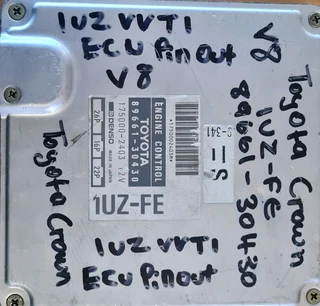 1UZ VVTI
ECU Pinout
V8
V8
Toyota Crown
1UZ-FE
89661-30430
ENGINE CONTROL
TOYOTA
89661-30430
DENSO MADE IN JAPAN
175000-2403 12V
26P 16P 22P
1UZ-FE
S-341
Toyota Crown
1UZ VVTI
ECU Pinout